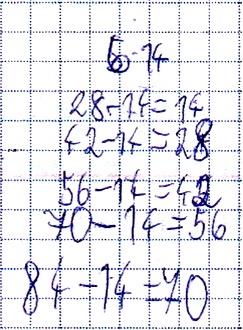 28-14=14
42-14=28
56-14=42
70-14=56
84-14=70